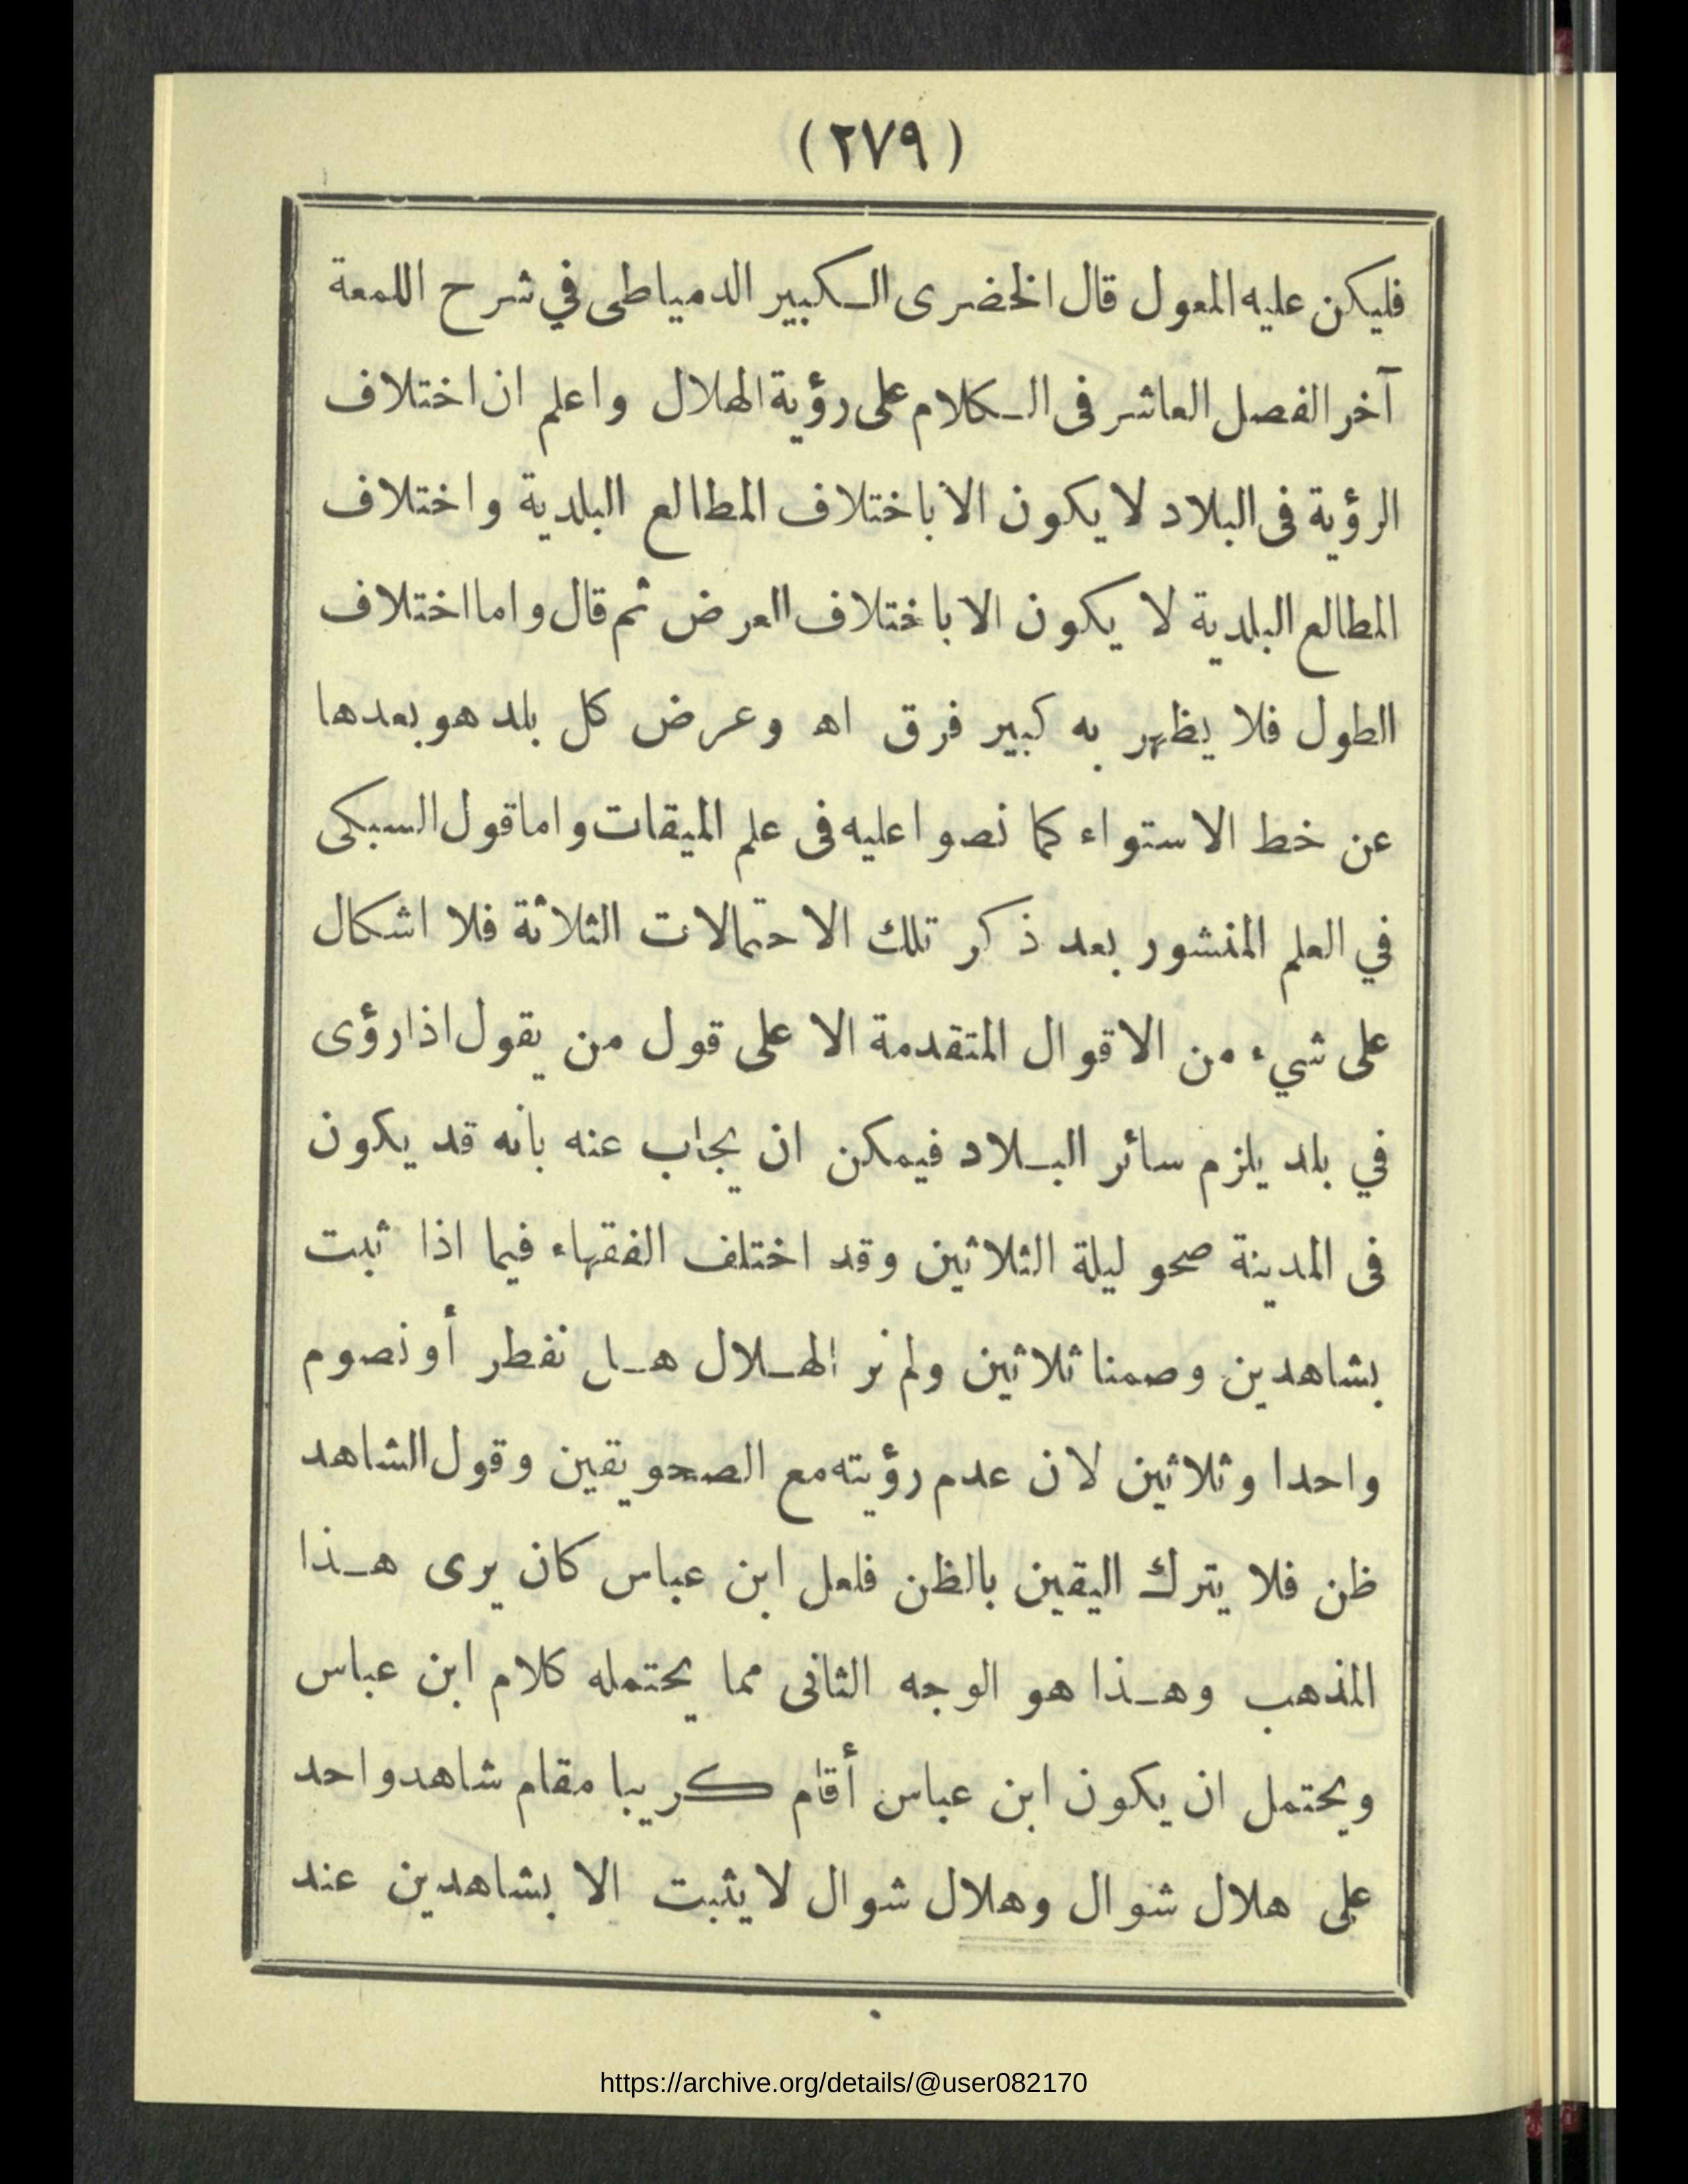 (٢٧٩)
فليكن عليه المعول قال الخضرى الكبير الدمياطى في شرح اللمعة
آخر الفصل العاشر فى الكلام على رؤية الهلال واعلم ان اختلاف
الرؤية فى البلاد لا يكون الا باختلاف المطالع البلدية واختلاف
المطالع البلدية لا يكون الا باختلاف العرض ثم قال واما اختلاف
الطول فلا يظهر به كبير فرق اه وعرض كل بلد هو بعدها
عن خط الاستواء كما نصوا عليه فى علم الميقات واما قول السبكى
في العلم المنشور بعد ذكر تلك الاحتمالات الثلاثة فلا اشكال
على شيء من الاقوال المتقدمة الا على قول من يقول اذا رؤى
في بلد يلزم سائر البلاد فيمكن ان يجاب عنه بانه قد يكون
فى المدينة صحو ليلة الثلاثين وقد اختلف الفقهاء فيما اذا ثبت
بشاهدين وصمنا ثلاثين ولم نر الهلال هل نفطر أو نصوم
واحدا وثلاثين لان عدم رؤيته مع الصحو يقين وقول الشاهد
ظن فلا يترك اليقين بالظن فلعل ابن عباس كان يرى هذا
المذهب وهذا هو الوجه الثانى مما يحتمله كلام ابن عباس
ويحتمل ان يكون ابن عباس أقام كريبا مقام شاهد واحد
على هلال شوال وهلال شوال لا يثبت الا بشاهدين عند
https://archive.org/details/@user082170